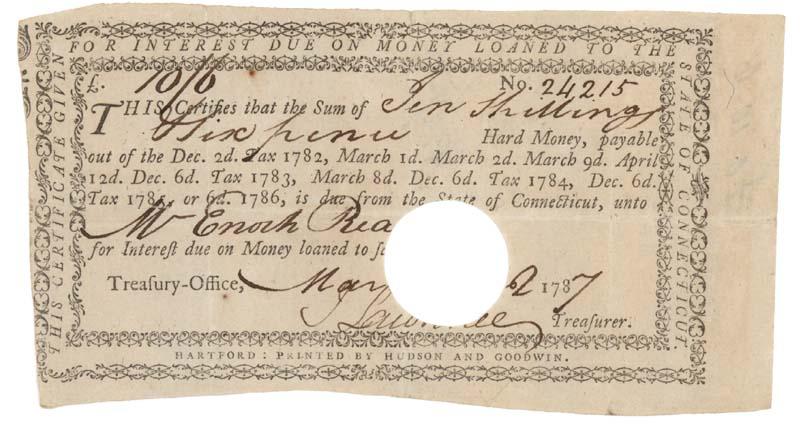 FOR INTEREST DUE ON MONEY LOANED TO THE
STATE OF CONNECTICUT.
THIS CERTIFICATE GIVEN
£. 10/6 No. 24215
THIS Certifies that the Sum of Ten Shillings
Six pence Hard Money, payable
out of the Dec. 2d. Tax 1782, March 1d. March 2d. March 9d. April
12d. Dec. 6d. Tax 1783, March 8d. Dec. 6d. Tax 1784, Dec. 6d.
Tax 1785, or 6d. 1786, is due from the State of Connecticut, unto
Mr Enoch Rea
for Interest due on Money loaned to
Treasury-Office, May 2 1787
J Lawrence Treasurer.
HARTFORD: PRINTED BY HUDSON AND GOODWIN.